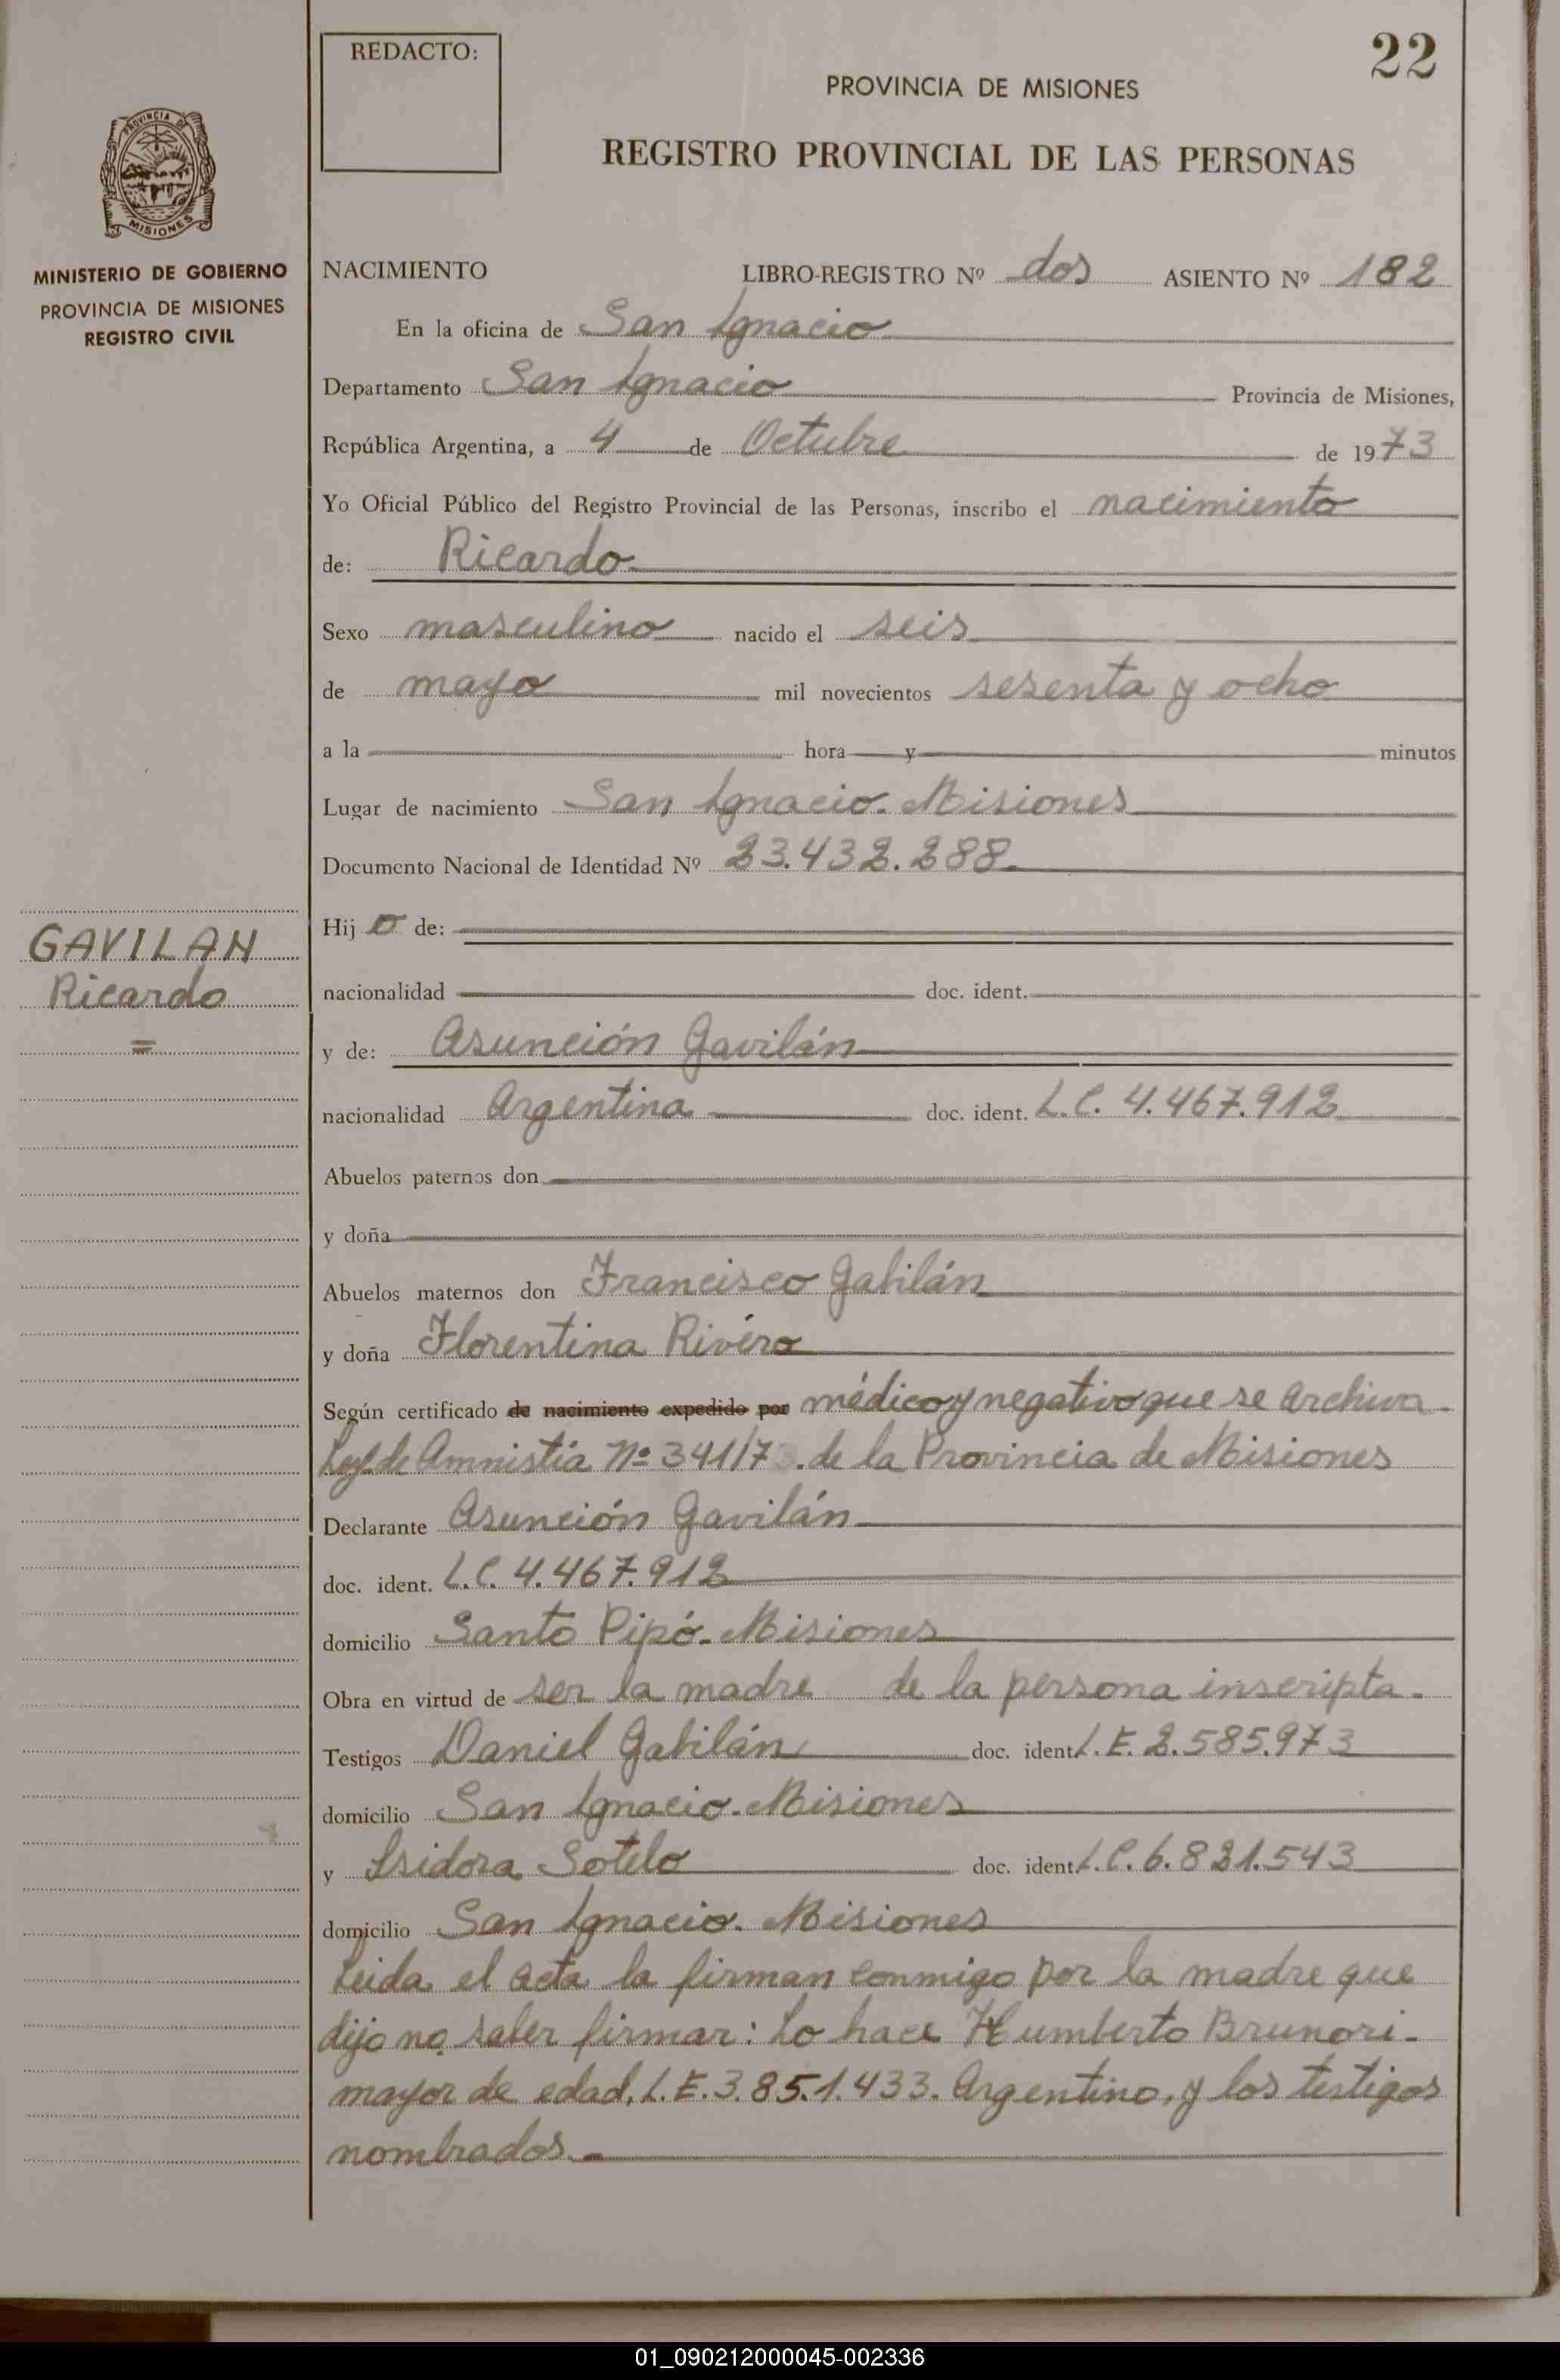 REDACTO:
22
PROVINCIA DE MISIONES
REGISTRO PROVINCIAL DE LAS PERSONAS
PROVINCIA DE
MISIONES
MINISTERIO DE GOBIERNO
PROVINCIA DE MISIONES
REGISTRO CIVIL
NACIMIENTO LIBRO-REGISTRO Nº dos ASIENTO Nº 182
En la oficina de San Ignacio
Departamento San Ignacio Provincia de Misiones,
República Argentina, a 4 de Octubre de 1973
Yo Oficial Público del Registro Provincial de las Personas, inscribo el nacimiento
de: Ricardo
Sexo masculino nacido el seis
de mayo mil novecientos sesenta y ocho
a la hora y minutos
Lugar de nacimiento San Ignacio. Misiones
Documento Nacional de Identidad Nº 23.432.288
Hij o de:
GAVILAN
Ricardo
=
nacionalidad doc. ident.
y de: Asunción Gavilán
nacionalidad Argentina doc. ident. L.C. 4.467.912
Abuelos paternos don
y doña
Abuelos maternos don Francisco Gabilán
y doña Florentina Rivero
Según certificado de nacimiento expedido por médico y negativo que se archiva.
Ley de Amnistía Nº 341/73. de la Provincia de Misiones
Declarante Asunción Gavilán
doc. ident. L.C. 4.467.912
domicilio Santo Pipó. Misiones
Obra en virtud de ser la madre de la persona inscripta.
Testigos Daniel Gabilán doc. ident. L.E. 2.585.973
domicilio San Ignacio. Misiones
y Isidora Sotelo doc. ident. L.C. 6.821.543
domicilio San Ignacio. Misiones
Leida el acta la firman conmigo por la madre que
dijo no saber firmar: Lo hace Humberto Brunori.
mayor de edad, L.E. 3.851.433. Argentino, y los testigos
nombrados.
01_090212000045-002336